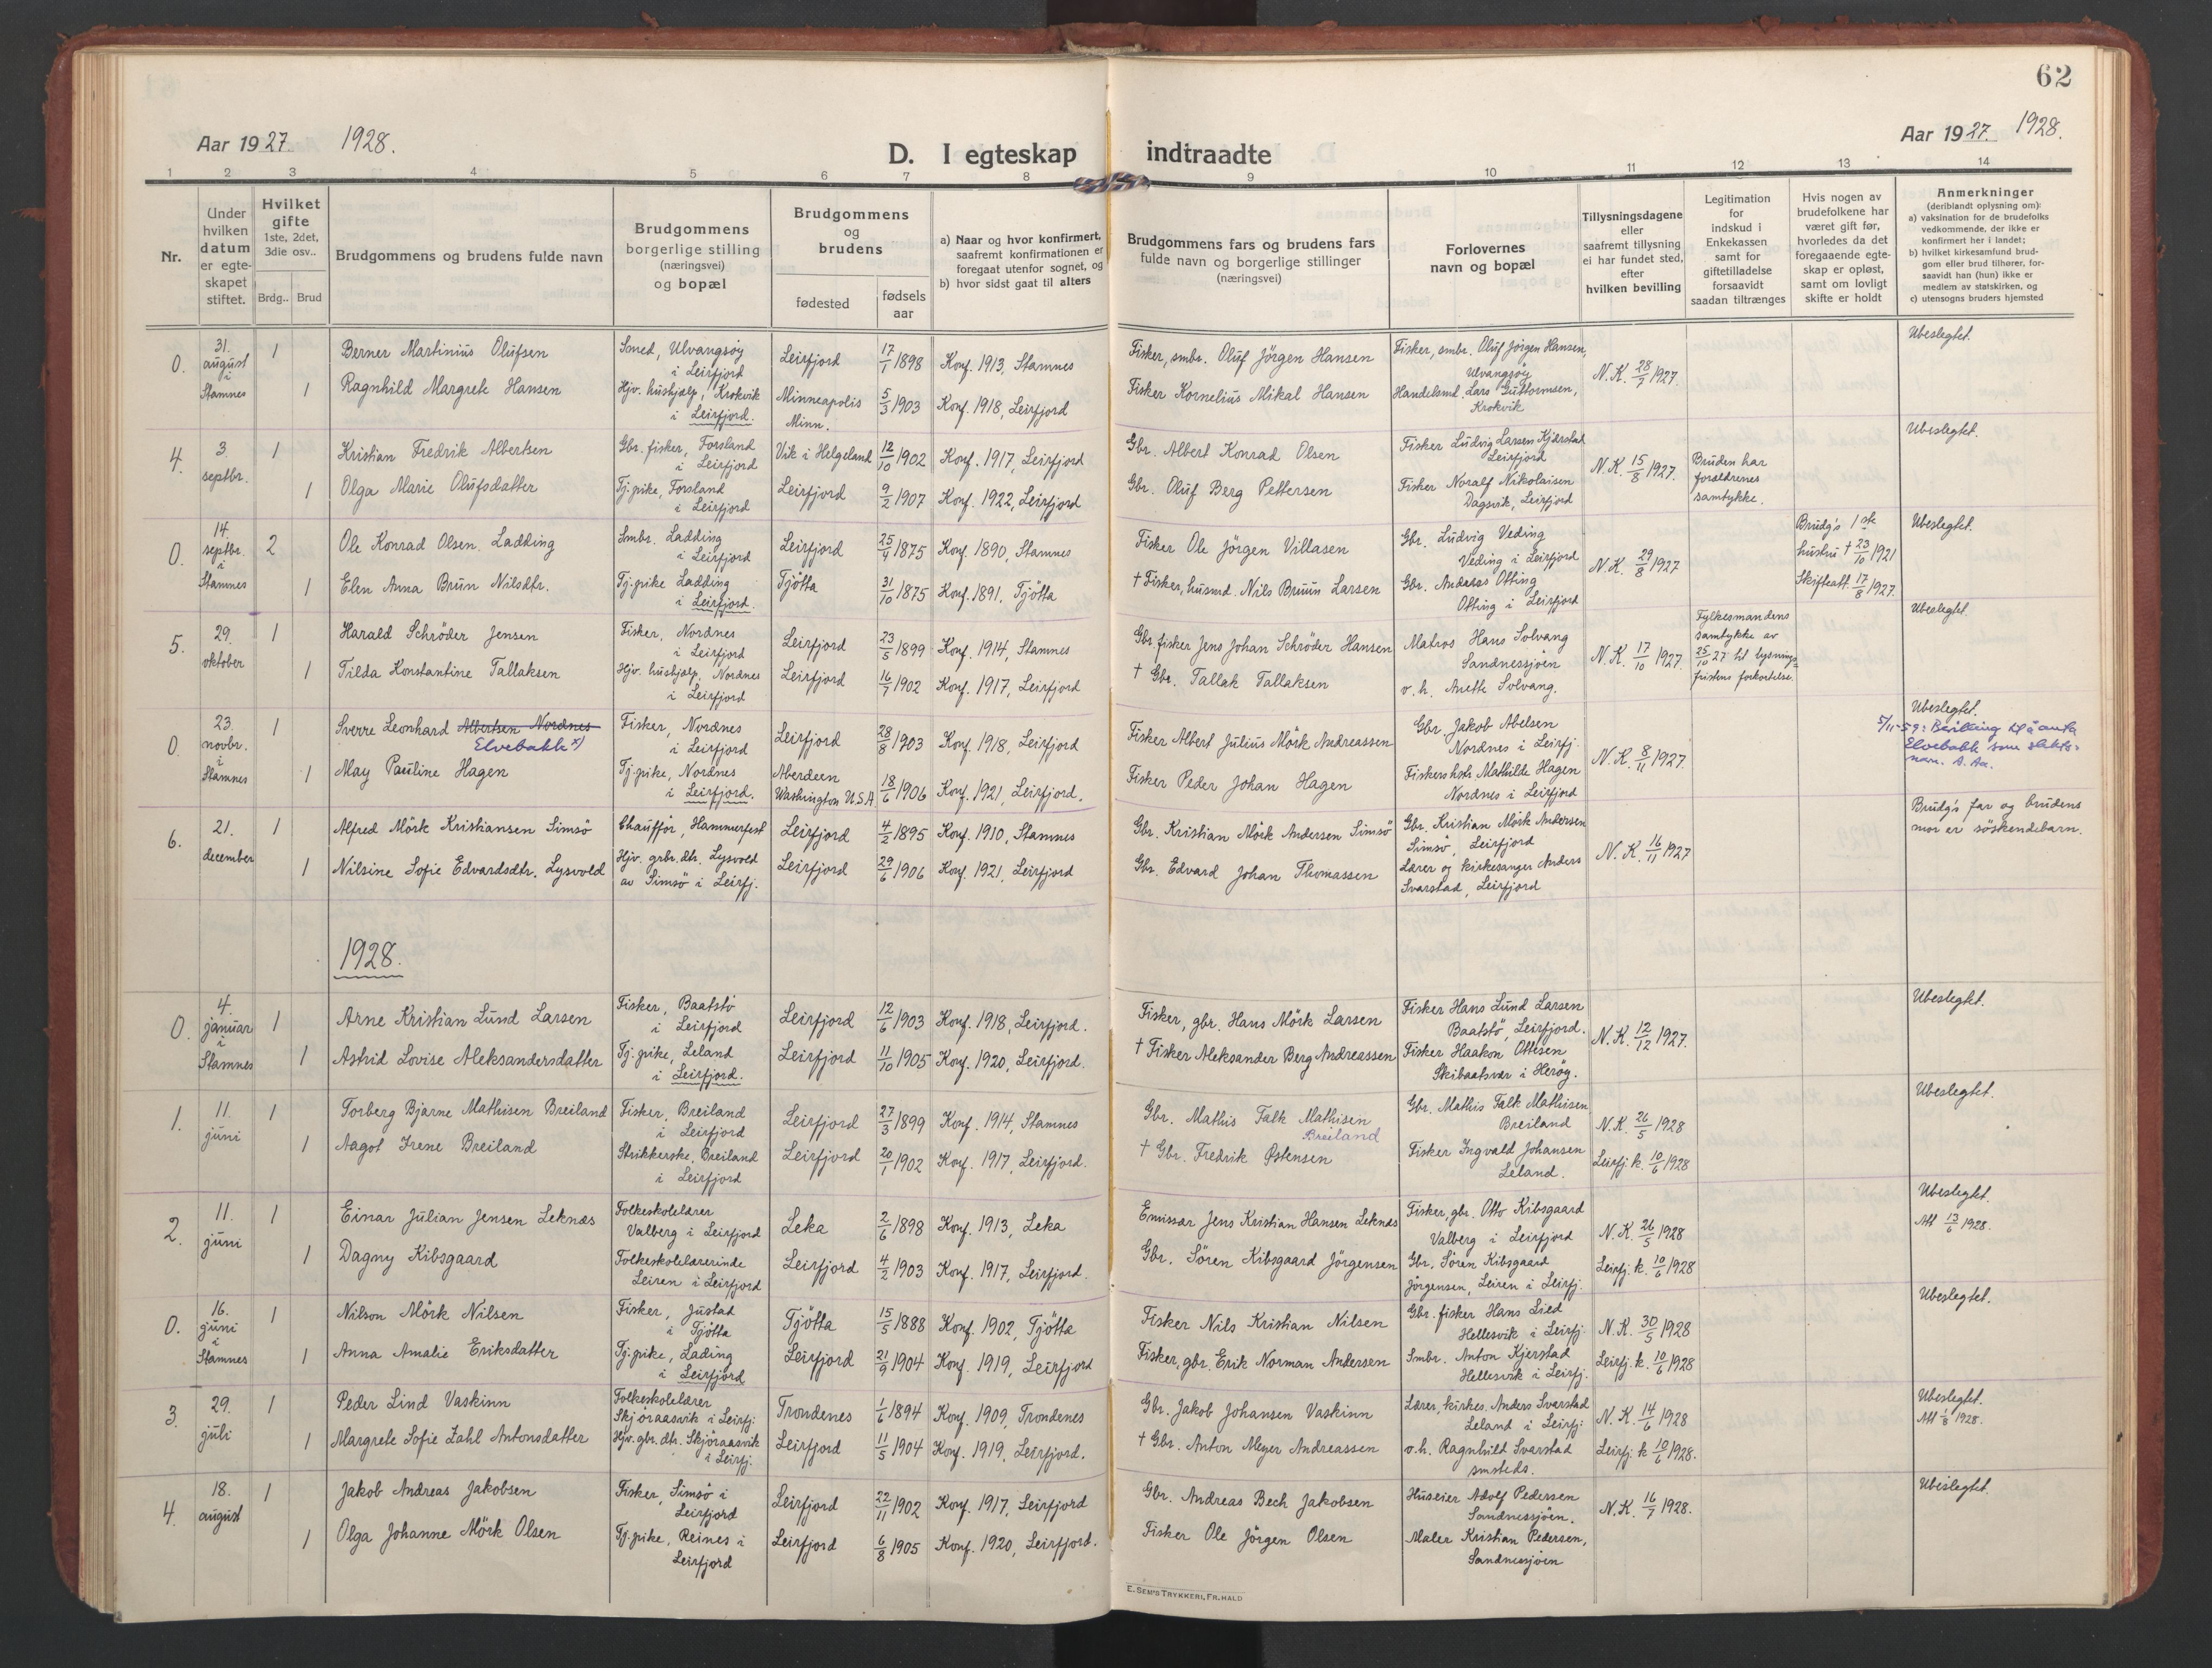 62
Aar 1927. 1928.
D. I egteskap indtraadte
Aar 1927. 1928.
1 2 3 4 5 6 7 8 9 10 11 12 13 14
Nr.
Under
hvilken
datum
er egte-
skapet
stiftet.
Hvilket
gifte
1ste, 2det,
3die osv..
Brdg.. Brud
Brudgommens og brudens fulde navn
Brudgommens
borgerlige stilling
(næringsvei)
og bopæl
Brudgommens
og
brudens
fødested
fødsels
aar
a) Naar og hvor konfirmert,
saafremt konfirmationen er
foregaat utenfor sognet, og
b) hvor sidst gaat til alters
Brudgommens fars og brudens fars
fulde navn og borgerlige stillinger
(næringsvei)
Forlovernes
navn og bopæl
Tillysningsdagene
eller
saafremt tillysning
ei har fundet sted,
efter
hvilken bevilling
Legitimation
for
indskud i
Enkekassen
samt for
giftetilladelse
forsaavidt
saadan tiltrænges
Hvis nogen av
brudefolkene har
været gift før,
hvorledes da det
foregaaende egte-
skap er opløst,
samt om lovligt
skifte er holdt
Anmerkninger
(deriblandt oplysning om):
a) vaksination for de brudefolks
vedkommende, der ikke er
konfirmert her i landet;
b) hvilket kirkesamfund brud-
gom eller brud tilhører, for-
saavidt han (hun) ikke er
medlem av statskirken, og
c) utensogns bruders hjemsted
0. 31. august i Stamnes
1 Berner Martinius Olufsen
Smed, Ulvangsøy
i Leirfjord
Leirfjord 17/1 1898 Konf. 1913, Stamnes
Fisker, smbr. Oluf Jörgen Hansen
Fisker, smbr. Oluf Jörgen Hansen,
Ulvangsøy
N.K. 28/7 1927.
Ubeslegtet.
1 Ragnhild Margrete Hansen
Hjv. hushjælp, Krokvik
i Leirfjord.
Minneapolis
Minn.
5/3 1903 Konf. 1918, Leirfjord
Fisker Kornelius Mikal Hansen
Handelsmd. Lars Guttormsen,
Krokvik
4. 3. septbr.
1 Kristian Fredrik Albertsen
Gbr. fisker, Forsland
i Leirfjord
Vik i Helgeland 12/10 1902 Konf. 1917, Leirfjord
Gbr. Albert Konrad Olsen
Fisker Ludvig Larsen Kjærstad
Leirfjord
N.K. 15/8 1927.
Bruden har
forældrenes
samtykke.
Ubeslegtet.
1 Olga Marie Olufsdatter
Tj.pike, Forsland
i Leirfjord
Leirfjord 9/2 1907 Konf. 1922, Leirfjord
Gbr. Oluf Berg Pettersen
Fisker Noralf Nikolaisen
Dagsvik, Leirfjord
0. 14. septbr. i Stamnes
2 Ole Konrad Olsen Ladding
Smbr. Ladding
i Leirfjord
Leirfjord 25/4 1875 Konf. 1890, Stamnes
Fisker Ole Jörgen Villasen
Gbr. Ludvig Veding
Veding i Leirfjord
N.K. 29/8 1927
Brudg's 1ste
hustru † 23/10 1921
Skifteatt. 17/8 1927.
Ubeslegtet.
1 Elen Anna Brun Nilsdtr.
Tj.pike Ladding
i Leirfjord.
Tjötta 31/10 1875 Konf. 1891, Tjötta
† Fisker, husmd. Nils Bruun Larsen
Gbr. Andreas Otting
Otting i Leirfjord
5. 29. oktober
1 Harald Schröder Jensen
Fisker, Nordnes
i Leirfjord
Leirfjord 23/5 1899 Konf. 1914, Stamnes
Gbr. fisker Jens Johan Schröder Hansen
Matros Hans Solvang
Sandnessjöen
N.K. 17/10 1927.
Fylkesmandens
samtykke av
25/10 27 til lysnings-
fristens forkortelse.
Ubeslegtet.
1 Tilda Konstantine Tallaksen
Hjv. hushjælp, Nordnes
i Leirfjord
Leirfjord 16/7 1902 Konf. 1917, Leirfjord
† Gbr. Tallak Tallaksen
o.h. Anette Solvang.
0. 23. novbr. i Stamnes
1 Sverre Leonhard Albertsen Nordnes
Elvebakk x)
Fisker, Nordnes
i Leirfjord
Leirfjord 28/8 1903 Konf. 1918, Leirfjord
Fisker Albert Julius Mörk Andreassen
Gbr. Jakob Abelsen
Nordnes i Leirfj.
N.K. 8/11 1927.
Ubeslegtet.
5/11-59: Bevilling til å anta
Elvebakk som slekts-
navn. A. Aa.
1 May Pauline Hagen
Tj.pike, Nordnes
i Leirfjord.
Aberdeen
Washington U.S.A
18/6 1906 Konf. 1921, Leirfjord.
Fisker Peder Johan Hagen
Fiskershstr. Mathilde Hagen
Nordnes i Leirfjord
6. 21. december
1 Alfred Mörk Kristiansen Simsö
Chauffør, Hammerfest
Leirfjord 4/2 1895 Konf. 1910, Stamnes
Gbr. Kristian Mörk Andersen Simsö
Gbr. Kristian Mörk Andersen
Simsö, Leirfjord
N.K. 16/11 1927
Brudg's far og brudens
mor er söskendebarn.
1 Nilsine Sofie Edvardsdtr. Lysvold
Hjv. grbr. dtr. Lysvold
av Simsö i Leirfj.
Leirfjord 29/6 1906 Konf. 1921, Leirfjord
Gbr. Edvard Johan Thomassen
Lærer og kirkesanger Anders
Svarstad, Leirfjord
1928.
0. 4. januar i Stamnes
1 Arne Kristian Lund Larsen
Fisker, Baatstö
i Leirfjord
Leirfjord 12/6 1903 Konf. 1918, Leirfjord.
Fisker, gbr. Hans Mörk Larsen
Fisker Hans Lund Larsen
Baatstö, Leirfjord.
N.K. 12/12 1927.
Ubeslegtet.
1 Astrid Lovise Aleksandersdatter
Tj.pike, Leland
i Leirfjord.
Leirfjord 11/10 1905 Konf. 1920, Leirfjord.
† Fisker Aleksander Berg Andreassen
Fisker Haakon Ottesen
Skibaatsvær i Heröy.
1. 11. juni
1 Torberg Bjarne Mathisen Breiland
Fisker, Breiland
i Leirfjord
Leirfjord 27/3 1899 Konf. 1914, Stamnes
Gbr. Mathis Falk Mathisen
Breiland
Gbr. Mathis Falk Mathisen
Breiland
N.K. 26/5 1928
Ubeslegtet.
1 Aagot Irene Breiland
Strikkerske, Breiland
i Leirfjord
Leirfjord 20/1 1902 Konf. 1917, Leirfjord.
† Gbr. Fredrik Østensen
Fisker Ingvald Johansen
Leland.
Leirfj. k. 10/6 1928
2. 11. juni
1 Einar Julian Jensen Leknæs
Folkeskolelærer
Valberg i Leirfjord
Leka 2/6 1898 Konf. 1913, Leka
Emissær Jens Kristian Hansen Leknæs
Fisker, gbr. Otto Kibsgaard
Valberg i Leirfjord
N.K. 26/5 1928
Ubeslegtet.
Att 13/6 1928.
1 Dagny Kibsgaard
Folkeskolelærerinde
Leiren i Leirfjord
Leirfjord 4/2 1903 Konf. 1917, Leirfjord.
Gbr. Sören Kibsgaard Jörgensen
Gbr. Sören Kibsgaard
Jörgensen, Leiren i Leirfj.
Leirfj. k. 10/6 1928
0. 16. juni i Stamnes
1 Nilson Mörk Nilsen
Fisker, Justad
i Tjötta
Tjötta 15/5 1888 Konf. 1902, Tjötta
Fisker Nils Kristian Nilsen
Gbr. fisker Hans Lied
Hellesvik i Leirfj.
N.K. 30/5 1928
Ubeslegtet.
1 Anna Amalie Eriksdatter
Tj.pike, Lading
i Leirfjord
Leirfjord 21/9 1904 Konf. 1919, Leirfjord
Fisker, gbr. Erik Norman Andersen
Smbr. Anton Kjerstad
Hellesvik i Leirfj.
Leirfj. k. 10/6 1928
3. 29. juli
1 Peder Lind Vaskinn
Folkeskolelærer
Skjøraasvik i Leirfj.
Trondenes 1/6 1894 Konf. 1909, Trondenes
Gbr. Jakob Johansen Vaskinn
Lærer, kirkes. Anders Svarstad
Leland i Leirfj.
N.K. 14/6 1928
Ubeslegtet.
Att 1/8 1928.
1 Margrete Sofie Zahl Antonsdatter
Hjv. gbr. dtr. Skjøraasvik
i Leirfj.
Leirfjord 11/5 1904 Konf. 1919, Leirfjord.
† Gbr. Anton Meyer Andreassen
o.h. Ragnhild Svarstad
smsteds.
Leirfj. k 10/6 1928.
4. 18. august
1 Jakob Andreas Jakobsen
Fisker, Simsö i
Leirfjord
Leirfjord 22/11 1902 Konf. 1917, Leirfjord
Gbr. Andreas Bech Jakobsen
Huseier Adolf Pedersen
Sandnessjöen.
N.K. 16/7 1928.
Ubeslegtet.
1 Olga Johanne Mörk Olsen
Tj.pike, Reines i
Leirfjord
Leirfjord 6/8 1905 Konf. 1920, Leirfjord.
Fisker Ole Jörgen Olsen
Maler Kristian Pedersen,
Sandnessjöen
E. SEM'S TRYKKERI, FR.HALD